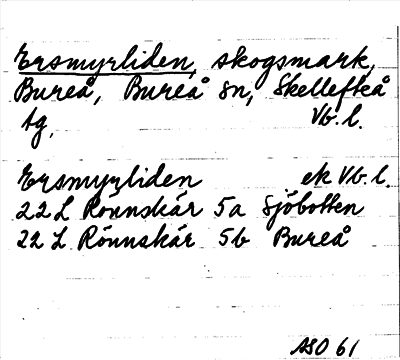 Ersmyrliden, skogsmark,
Bureå, Bureå sn, Skellefteå
tg, Vb. l.
Ersmyrliden ek Vb. l.
22 L Rönnskär 5a Sjöbotten
22 L Rönnskär 5b Bureå
ASO 61